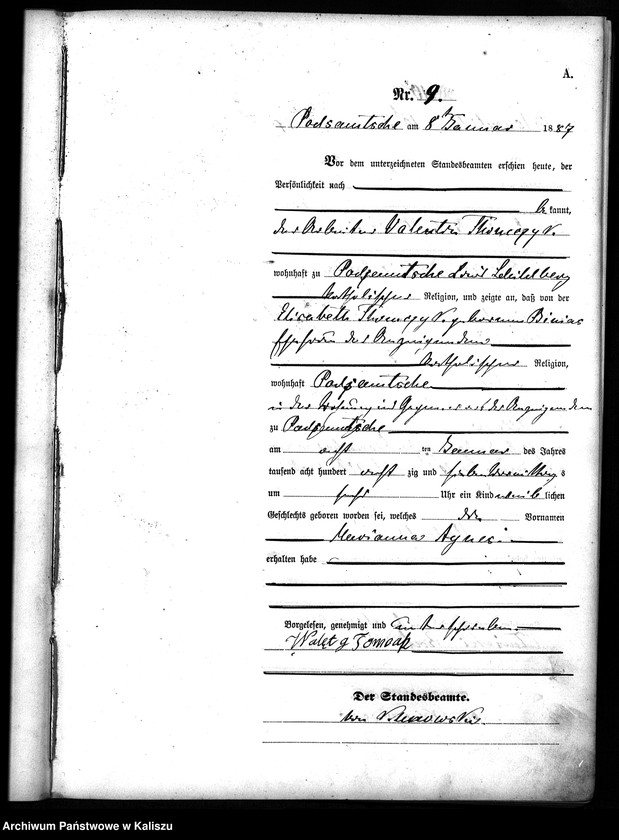 A.
Nr. 9.
Podsamtsche am 8 Januar 1887
Vor dem unterzeichneten Standesbeamten erschien heute, der
Persönlichkeit nach
be kannt,
der Arbeiter Valentin
wohnhaft zu Podzamtsche
katholischer Religion, und zeigte an, daß von der
Elisabeth geborenen Binias
Ehefrau des Anzeigenden
katholischer Religion,
wohnhaft Podzamtsche
in der Wohnung in Gegenwart des Anzeigenden
zu Podzamtsche
am acht ten Januar des Jahres
tausend acht hundert acht zig und sieben Vormittags
um sechs Uhr ein Kind weib lichen
Geschlechts geboren worden sei, welches die Vornamen
Marianna Agnes
erhalten habe
Vorgelesen, genehmigt und unterschrieben
Der Standesbeamte.
von
Archiwum Państwowe w Kaliszu